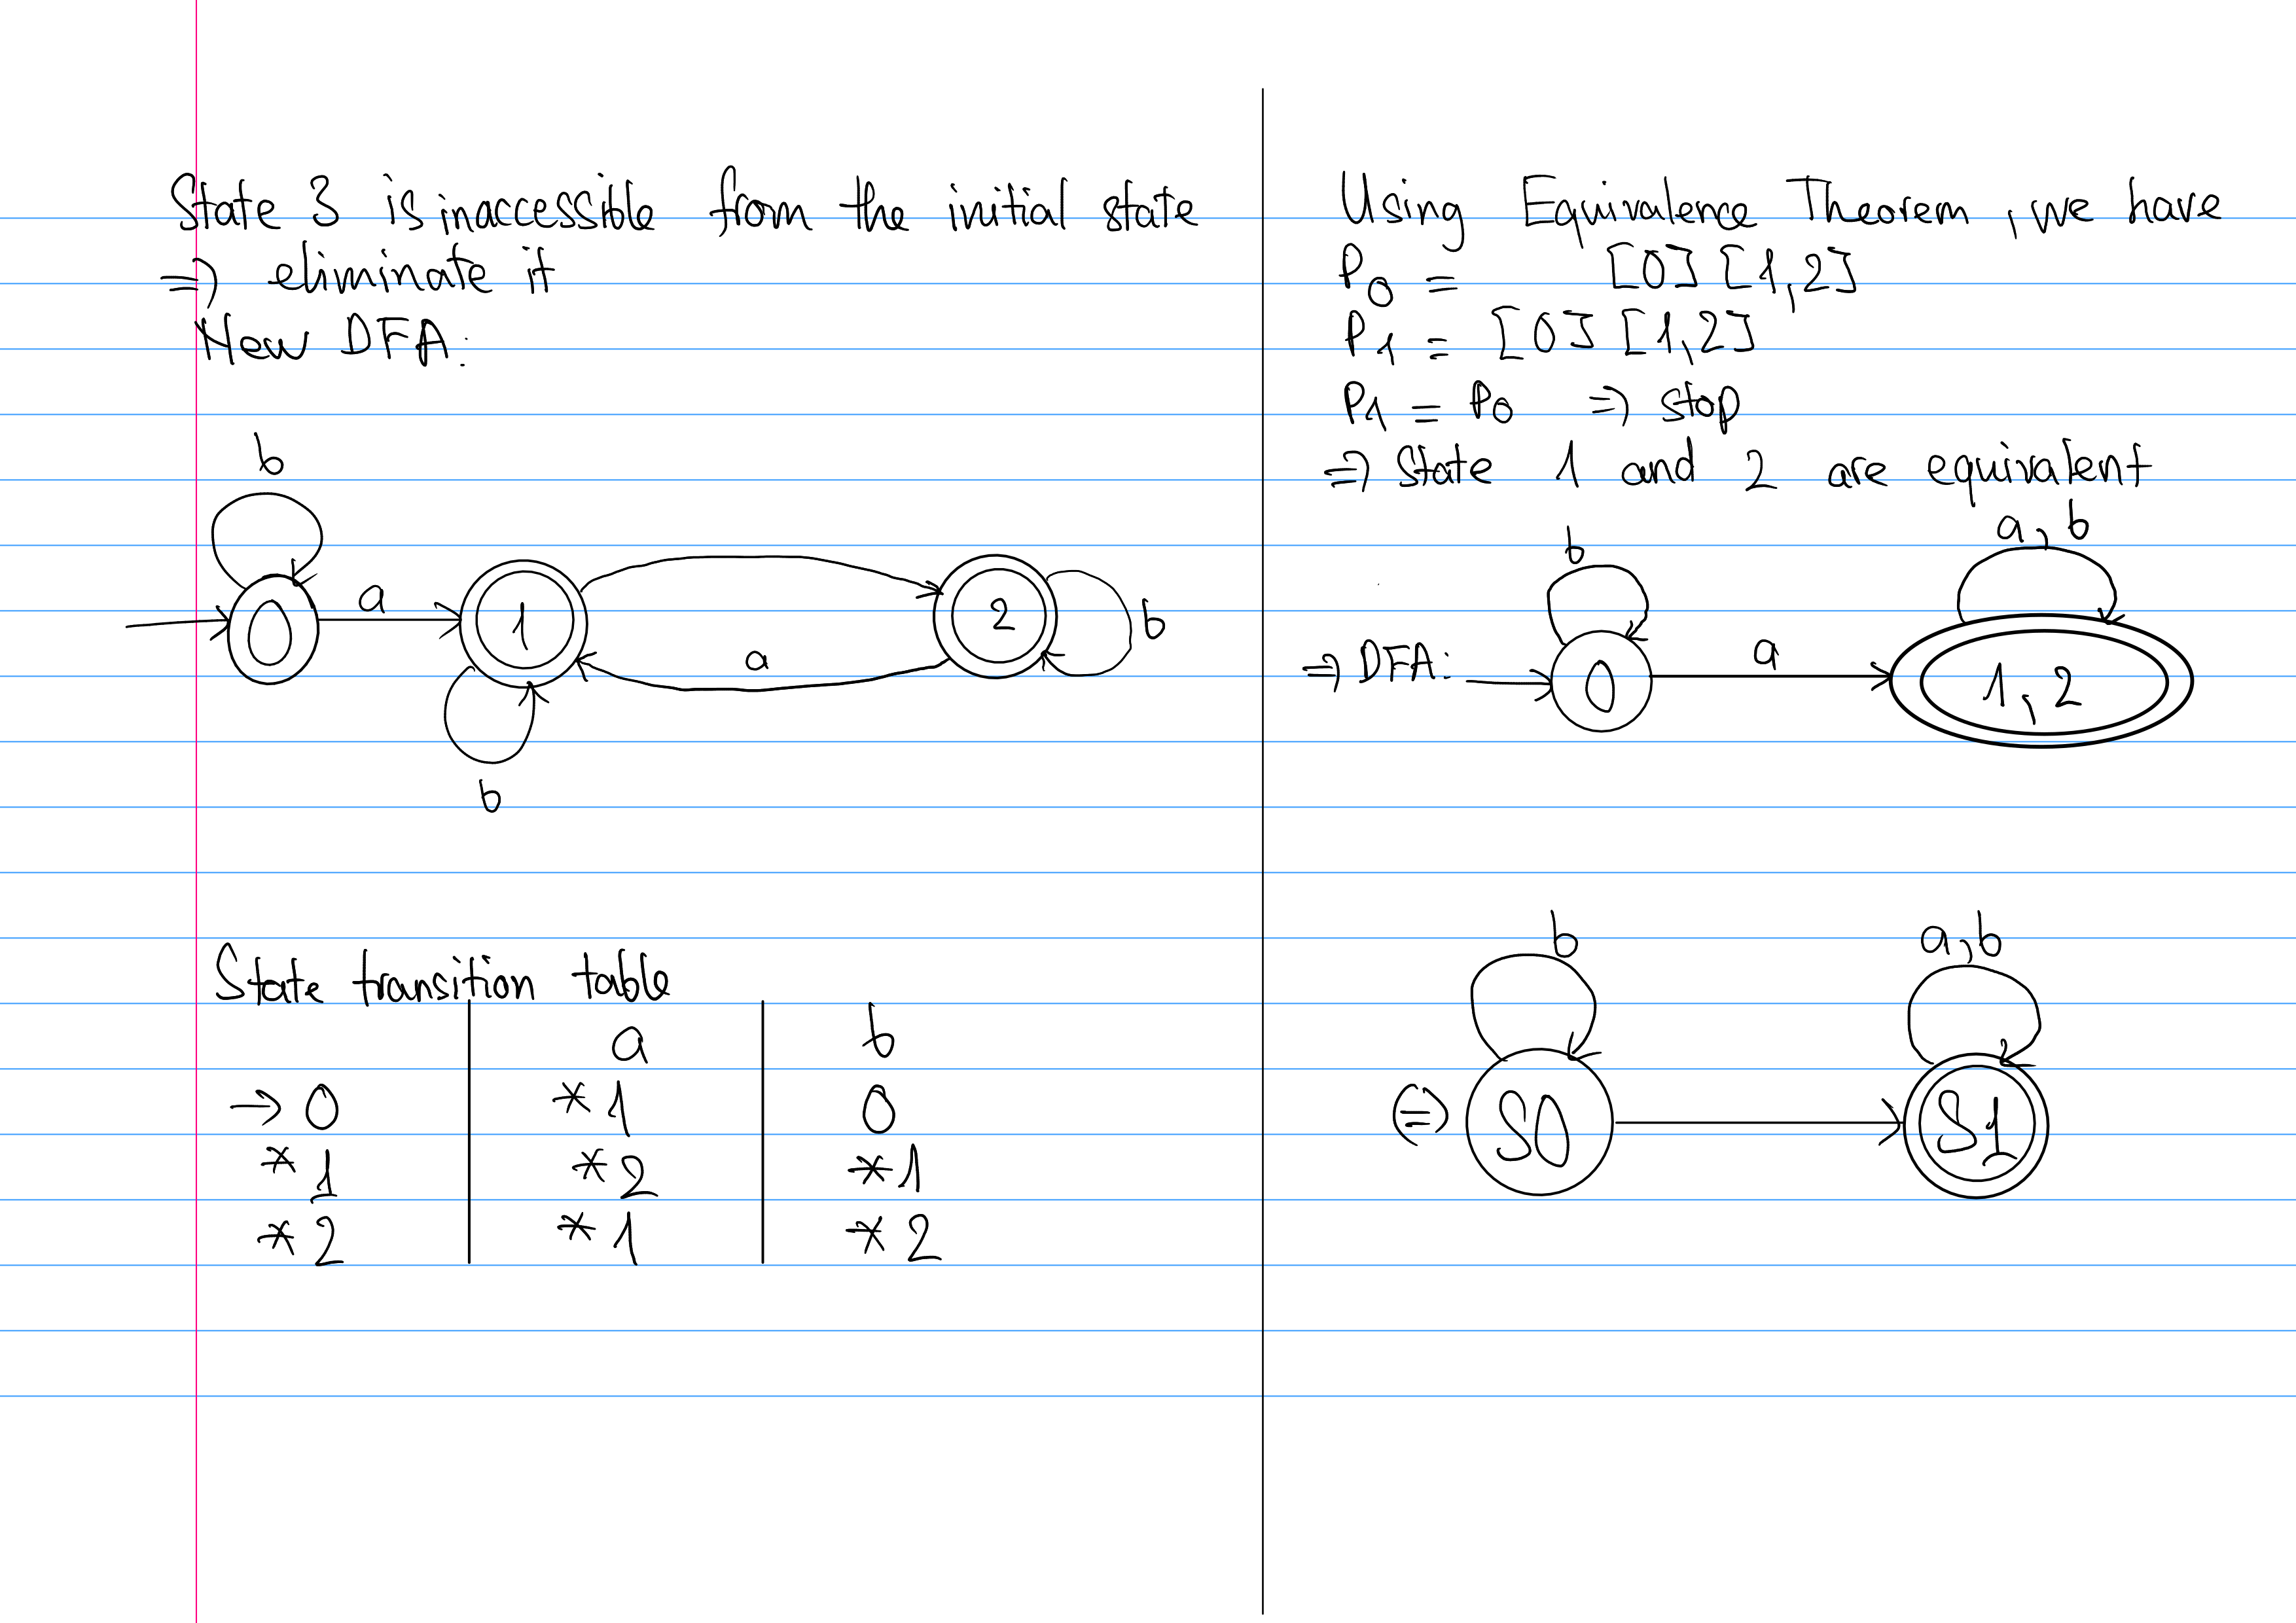 State 3 is inaccessible from the initial state
=> eliminate it
New DFA:
b
0
a
1
a
2
b
b
State transition table
a b
→ 0 *1 0
*1 *2 *1
*2 *1 *2
Using Equivalence Theorem, we have
P0 = [0] [1,2]
P1 = [0] [1,2]
P1 = P0 => stop
=> State 1 and 2 are equivalent
b
a, b
=> DFA:
0
a
1,2
b
a,b
(=)
S0
S1